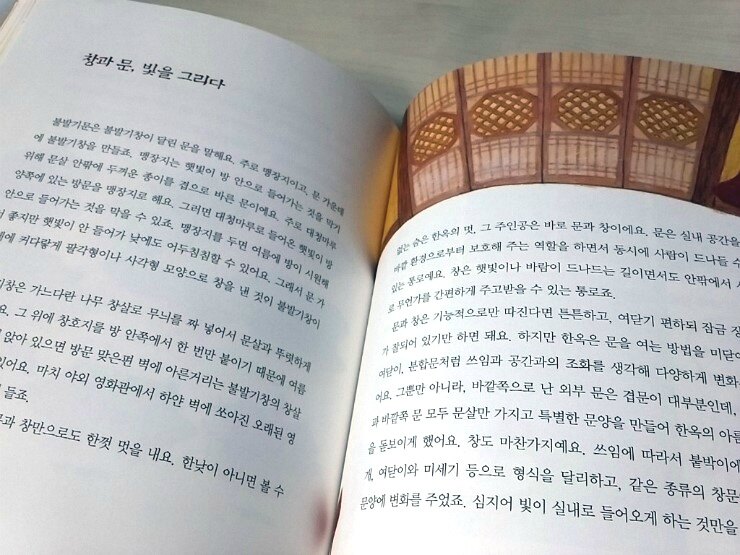 창과 문, 빛을 그리다
불발기문은 불발기창이 달린 문을 말해요. 주로 맹장지이고, 문 가운데
에 불발기창을 만들죠. 맹장지는 햇빛이 방 안으로 들어가는 것을 막기
위해 문살 안팎에 두꺼운 종이를 겹으로 바른 문이에요. 주로 대청마루
양쪽에 있는 방문을 맹장지로 해요. 그러면 대청마루로 들어온 햇빛이 방
안으로 들어가는 것을 막을 수 있죠. 맹장지를 두면 여름에 방이 시원해
좋지만 햇빛이 안 들어가 낮에도 어두침침할 수 있어요. 그래서 문 가
에 커다랗게 팔각형이나 사각형 모양으로 창을 낸 것이 불발기창이
기창은 가느다란 나무 창살로 무늬를 짜 넣어서 문살과 뚜렷하게
요. 그 위에 창호지를 방 안쪽에서 한 번만 붙이기 때문에 여름
앉아 있으면 방문 맞은편 벽에 아른거리는 불발기창의 창살
있어요. 마치 야외 영화관에서 하얀 벽에 쏘아진 오래된 영
들죠.
과 창만으로도 한껏 멋을 내요. 한낮이 아니면 볼 수
없는 숨은 한옥의 멋, 그 주인공은 바로 문과 창이에요. 문은 실내 공간을
바깥 환경으로부터 보호해 주는 역할을 하면서 동시에 사람이 드나들 수
있는 통로예요. 창은 햇빛이나 바람이 드나드는 길이면서도 안팎에서 사
로 무언가를 간편하게 주고받을 수 있는 통로죠.
문과 창은 기능적으로만 따진다면 튼튼하고, 여닫기 편하되 잠금 장
가 잘되어 있기만 하면 돼요. 하지만 한옥은 문을 여는 방법을 미닫이
여닫이, 분합문처럼 쓰임과 공간과의 조화를 생각해 다양하게 변화
어요. 그뿐만 아니라, 바깥쪽으로 난 외부 문은 겹문이 대부분인데,
과 바깥쪽 문 모두 문살만 가지고 특별한 문양을 만들어 한옥의 아름
을 돋보이게 했어요. 창도 마찬가지예요. 쓰임에 따라서 붙박이에
개, 여닫이와 미세기 등으로 형식을 달리하고, 같은 종류의 창문
문양에 변화를 주었죠. 심지어 빛이 실내로 들어오게 하는 것만을